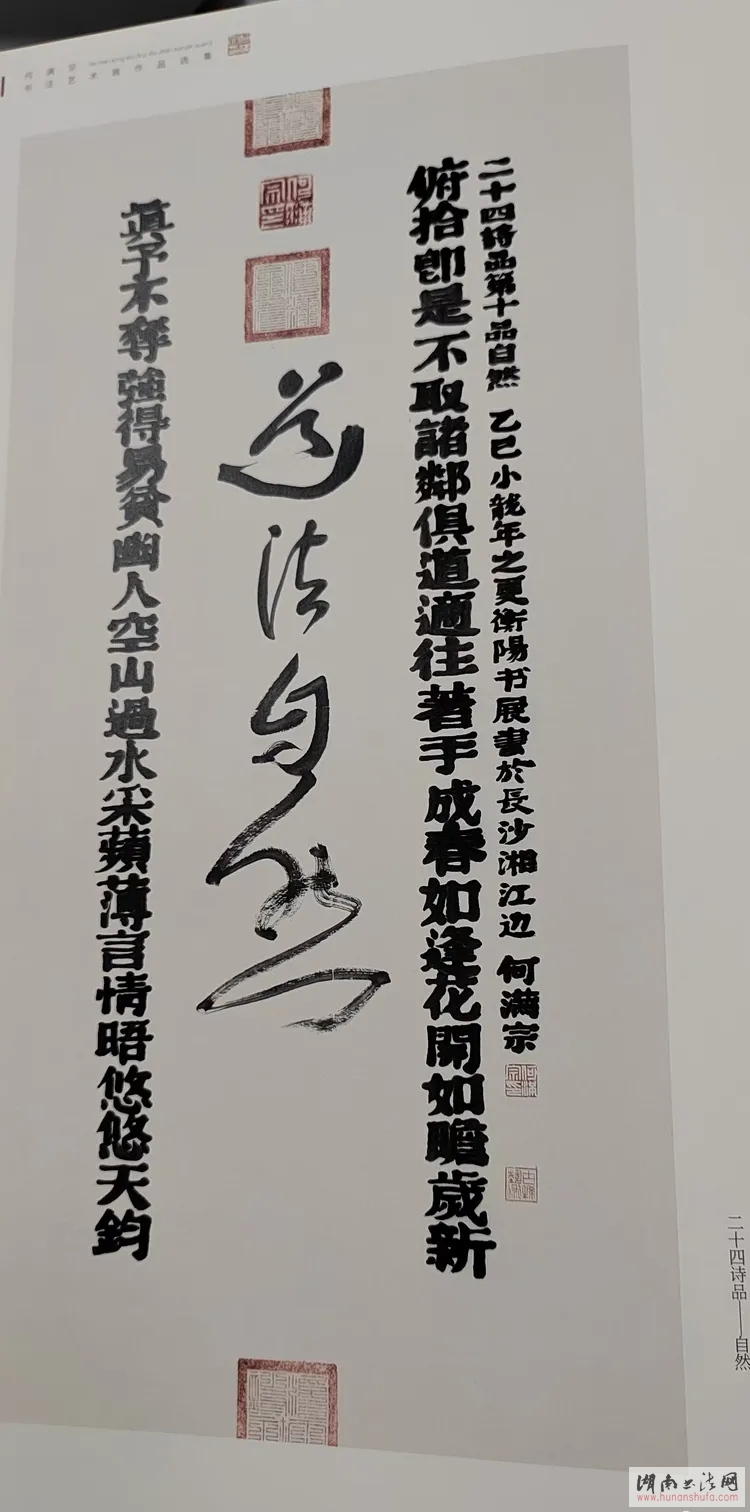 何满宗
书法艺术展作品选集
二十四詩品第十品自然 乙巳小龍年之夏衡陽书展書於長沙湘江边 何满宗
俯拾卽是不取諸鄰俱道適往著手成春如逢花開如瞻歲新
道法自然
眞予不奪強得易貧幽人空山過水采蘋薄言情晤悠悠天鈞
二十四诗品——自然
湖南书法网
www.hunanshufa.com